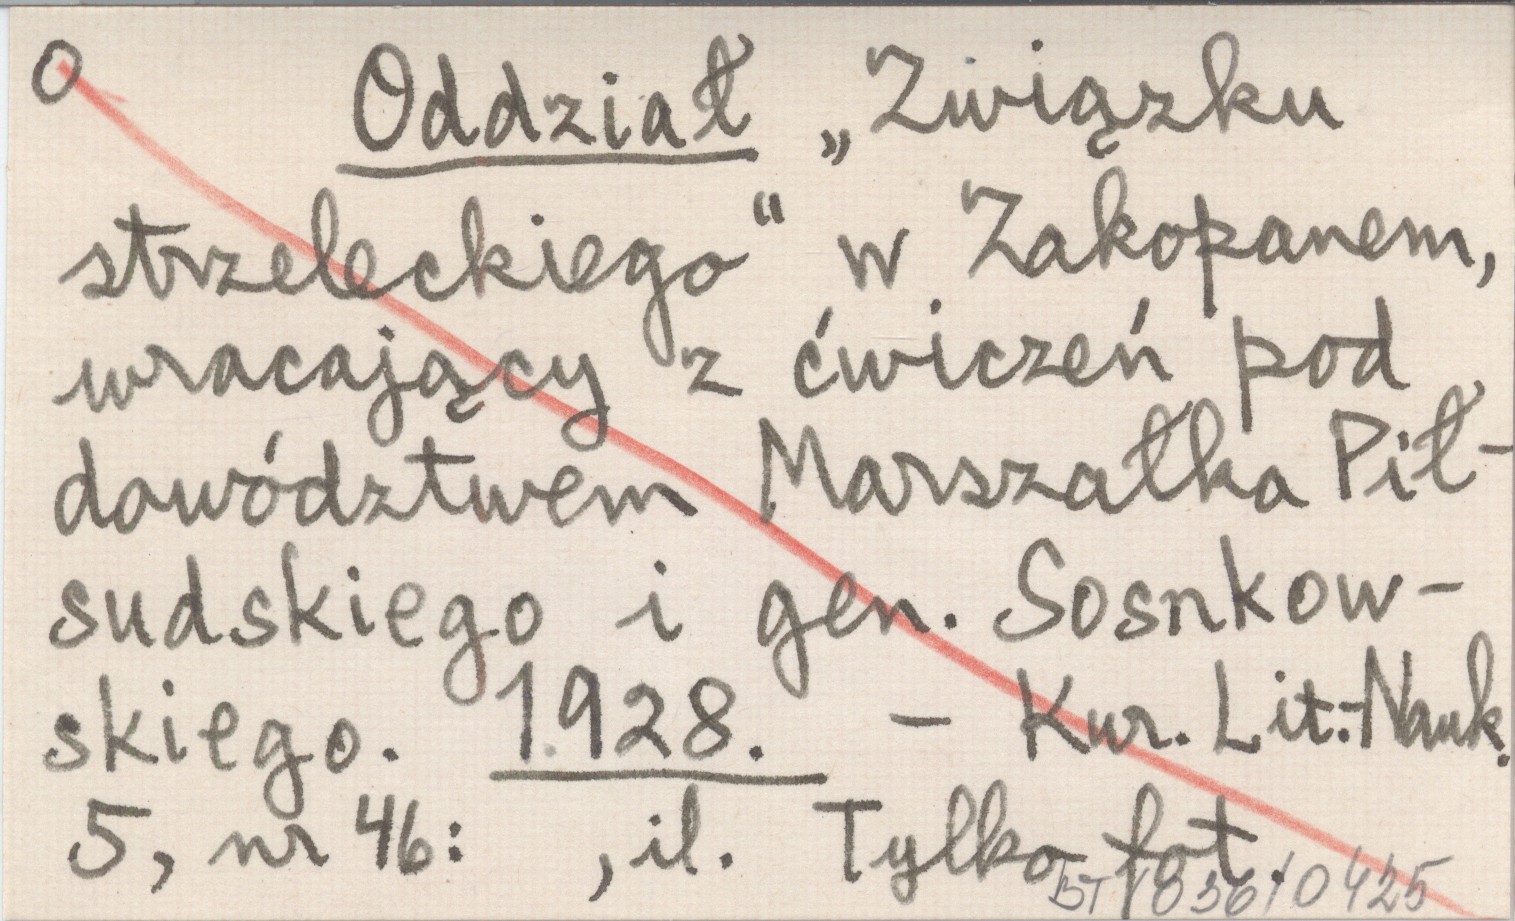 O Oddział „Związku
strzeleckiego" w Zakopanem,
wracający z ćwiczeń pod
dowództwem Marszałka Pił-
sudskiego i gen. Sosnkow-
skiego. 1928. – Kur. Lit.-Nauk.
5, nr 46: , il. Tylko fot.
BT/036/0425